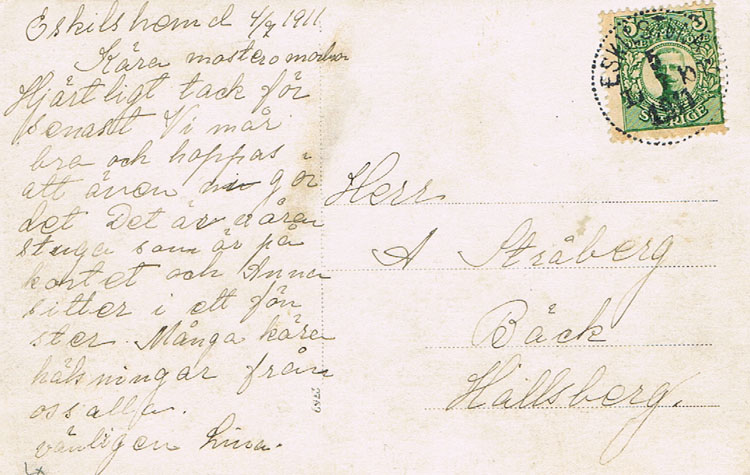 Eskilshem d 4/7 1911
Kära moster o morbror
Hjärtligt tack för
senast Vi mår
bra och hoppas
att även ni gör
det Det är våran
stuga som är på
kortet och Anna
sitter i ett fön
ster. Många kära
hälsningar från
oss alla.
vänligen Lina.
Herr
A Stråberg
Bäck
Hallsberg.
SVERIGE
1911